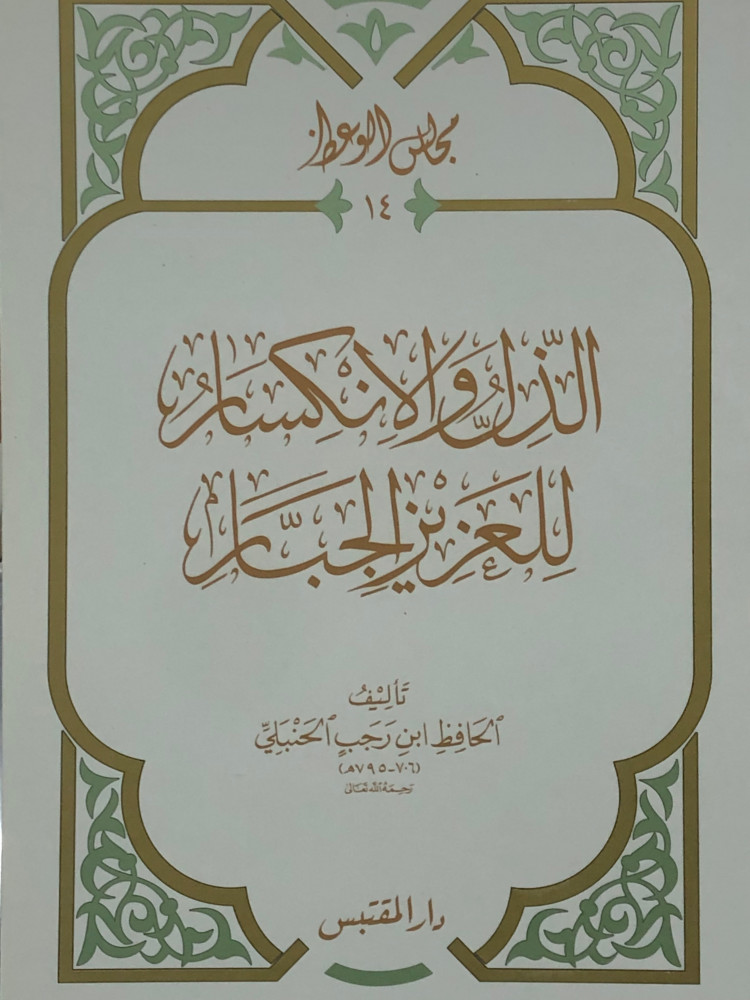 مجالس الوعظ
١٤
الذِّلُّ وَالِانْكِسَارُ
لِلعَزِيزِ الجَبَّارِ
تَأْلِيْفُ
الحَافِظِ ابنِ رَجَبٍ الحَنْبَلِيِّ
(٧٠٦-٧٩٥هـ)
رَحِمَهُ اللَّه تَعَالَى
دار المقتبس